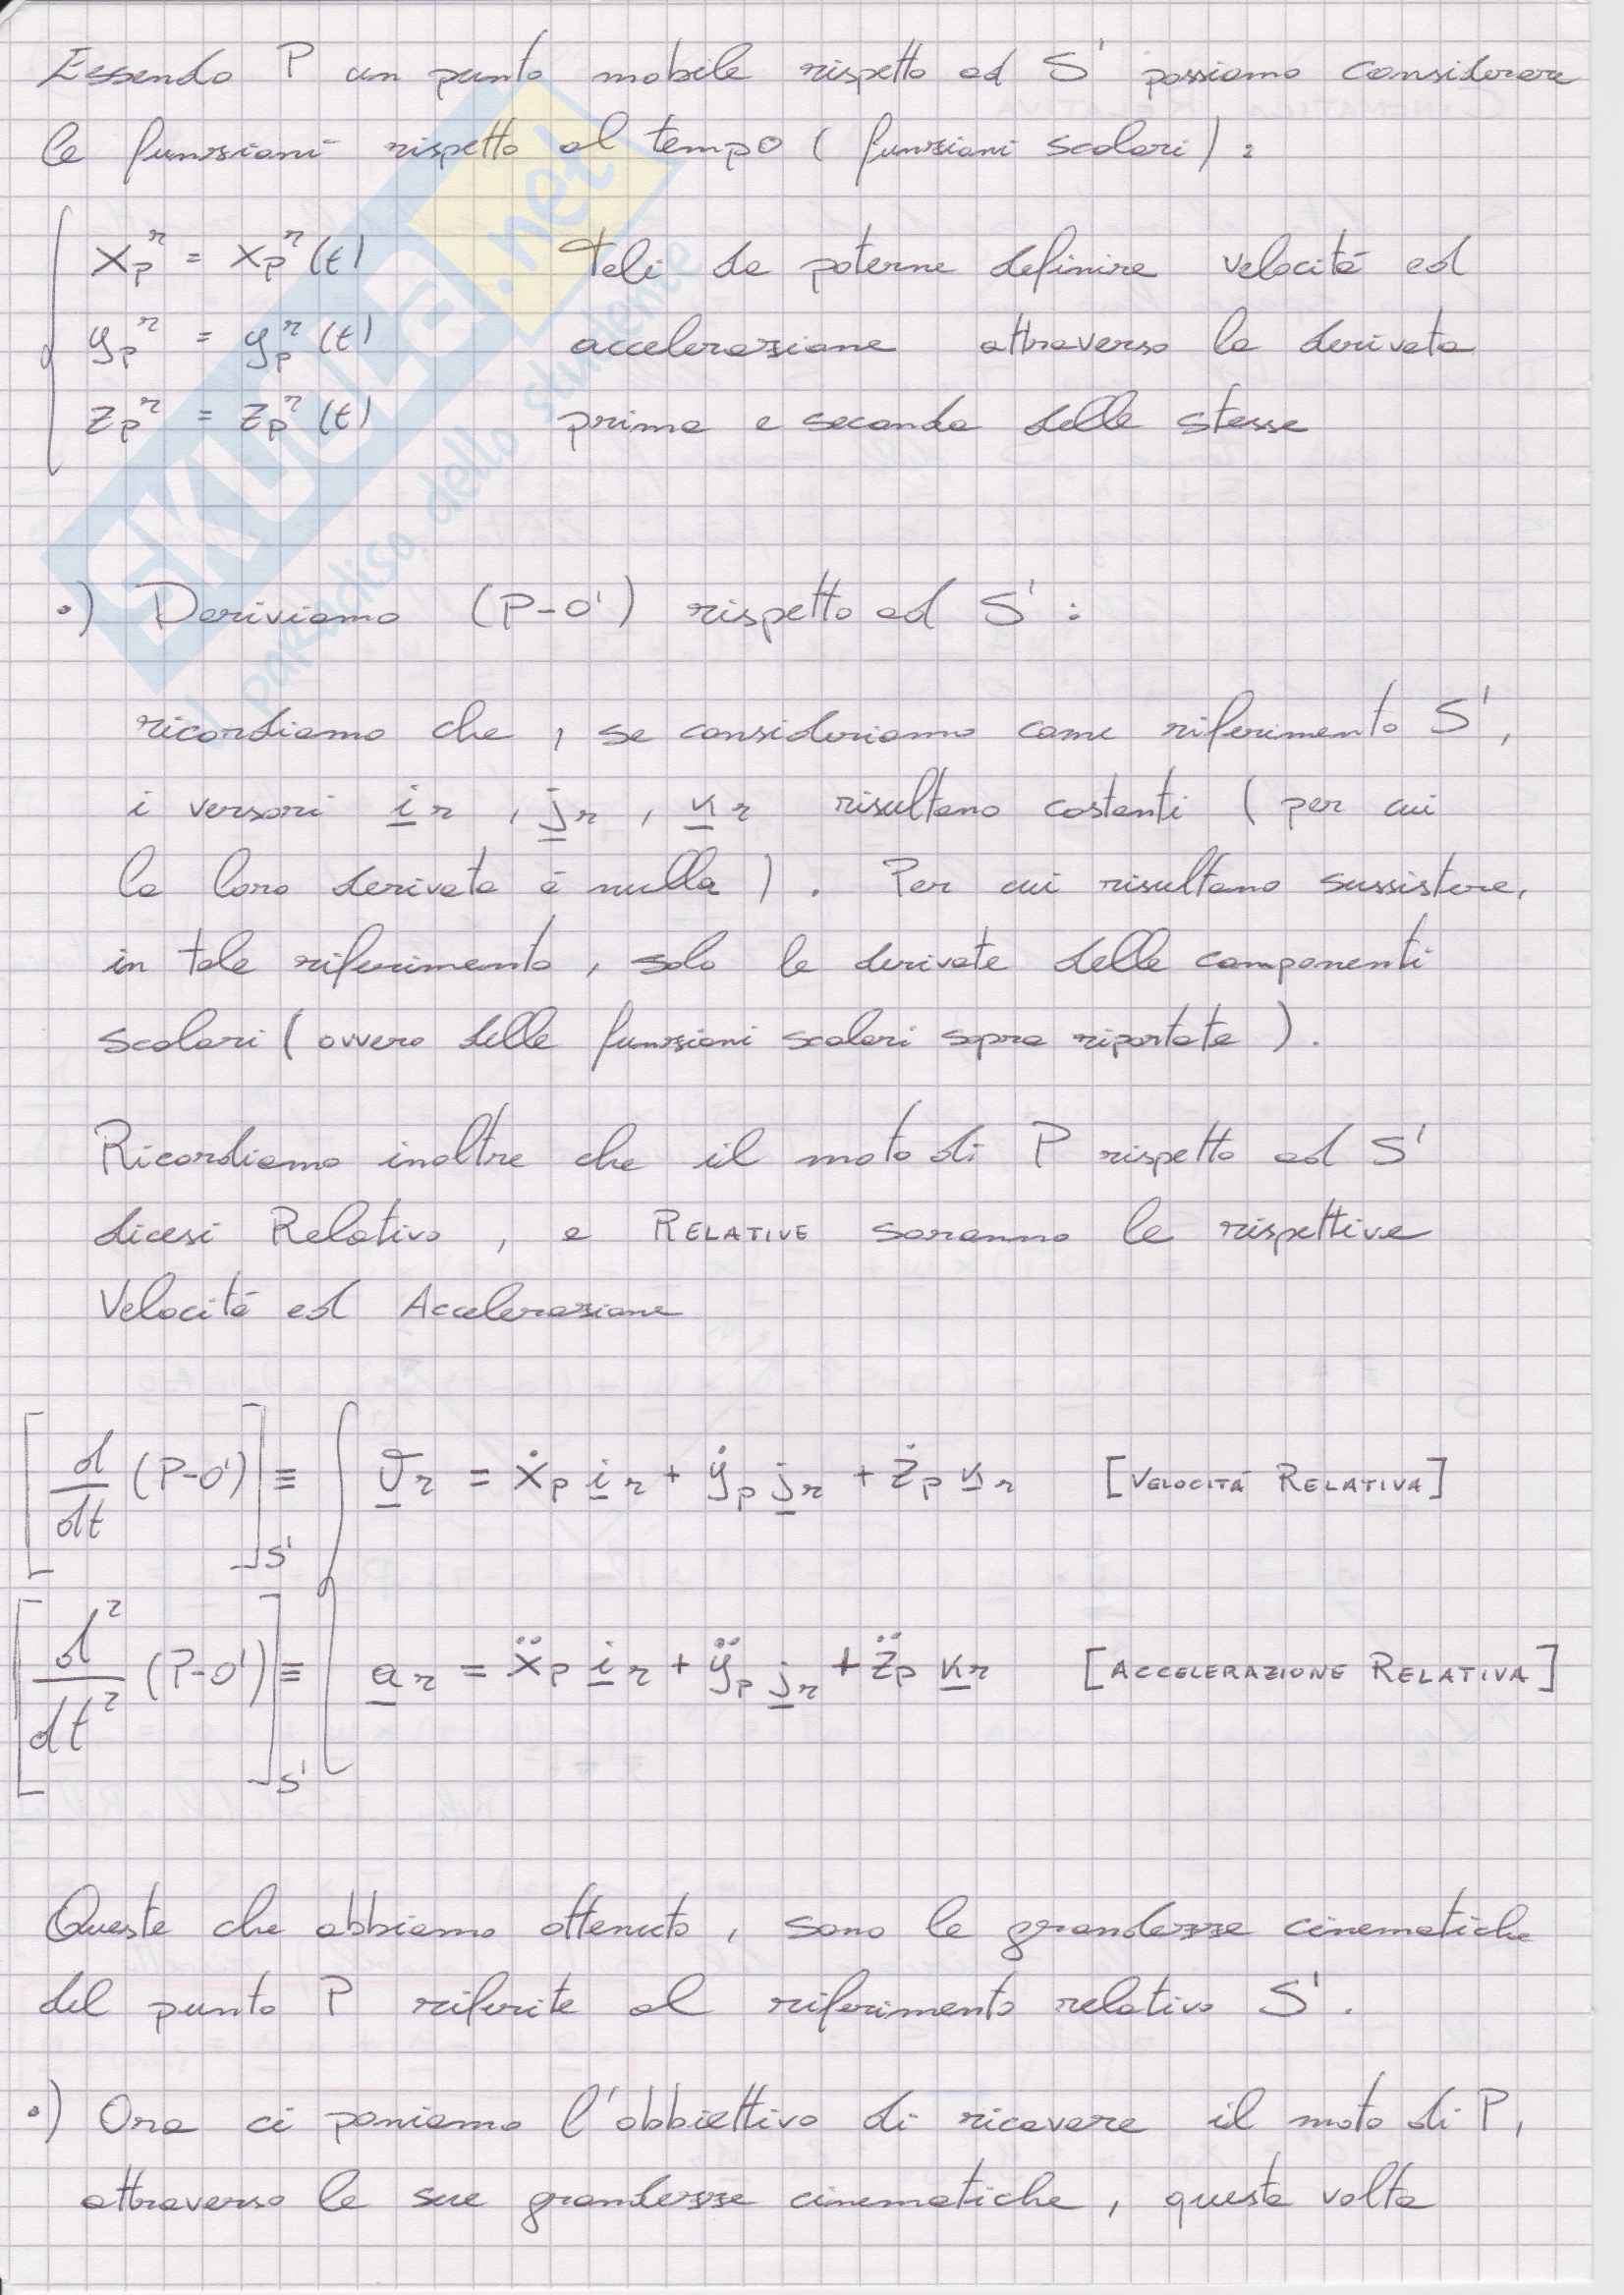 Essendo P un punto mobile rispetto ad S' possiamo considerare
le funzioni rispetto al tempo (funzioni scalari):
x_P^r = x_P^r (t) Tali da poterne definire velocità ed
y_P^r = y_P^r (t) accelerazione attraverso la derivata
z_P^r = z_P^r (t) prima e seconda delle stesse
•) Deriviamo (P-O') rispetto ad S':
ricordiamo che, se consideriamo come riferimento S',
i versori i_r, j_r, k_r risultano costanti (per cui
la loro derivata è nulla). Per cui risultano sussistere,
in tale riferimento, solo le derivate delle componenti
scalari (ovvero delle funzioni scalari sopra riportate).
Ricordiamo inoltre che il moto di P rispetto ad S'
dicesi Relativo, e RELATIVE saranno le rispettive
Velocità ed Accelerazione
[d/dt (P-O')]_S' ≡ { v_r = ẋ_P i_r + ẏ_P j_r + ż_P k_r [VELOCITÀ RELATIVA]
[d²/dt² (P-O')]_S' ≡ { a_r = ẍ_P i_r + ÿ_P j_r + z̈_P k_r [ACCELERAZIONE RELATIVA]
Queste che abbiamo ottenuto, sono le grandezze cinematiche
del punto P riferite al riferimento relativo S'.
•) Ora ci poniamo l'obbiettivo di ricavare il moto di P,
attraverso le sue grandezze cinematiche, questa volta
SKUOLA.net
il paradiso dello studente